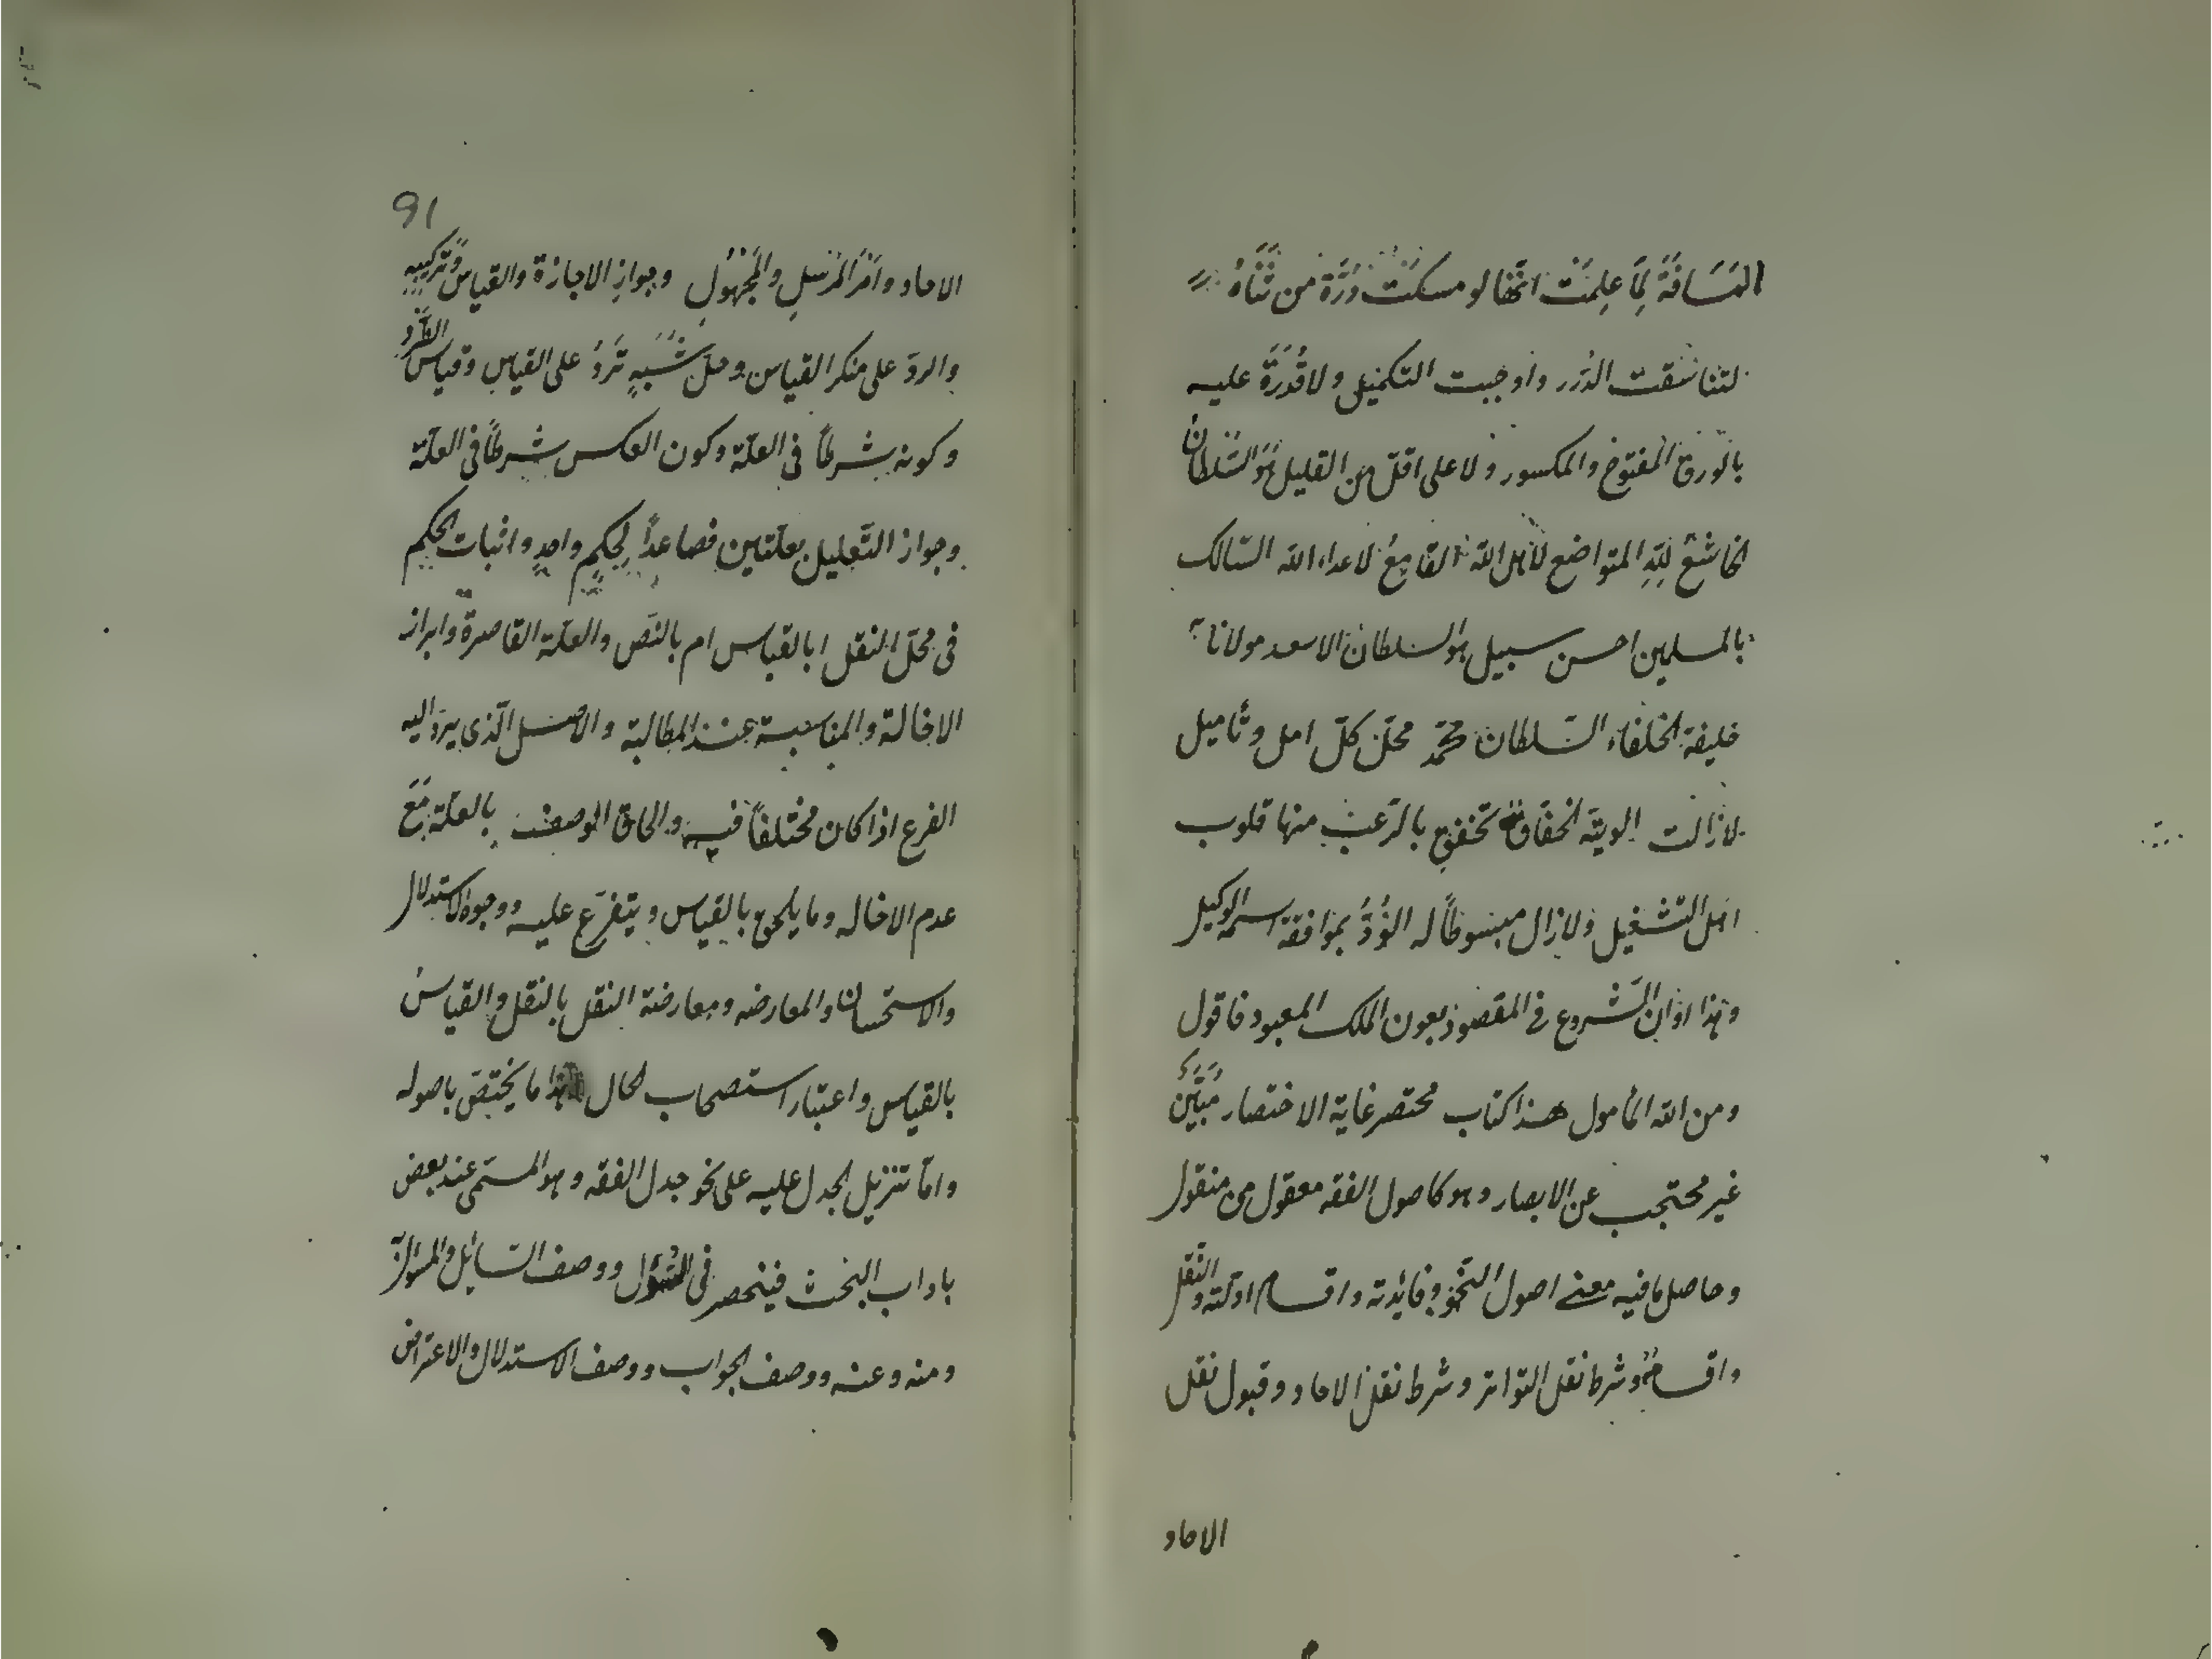 المسافة لما علمت انها لو مسكت درة من ثناه
لتناسقت الدرر واوجبت التكميل ولا قدرة عليه
بالورق المفتوح والمكسور ولا على اقل من القليل هو السلطان
الخاشع لله المتواضع لاهل الله القامع لاعداء الله السالك
بالمسلمين احسن سبيل هو السلطان الاسعد مولانا
خليفة الخلفاء السلطان محمد محل كل امل وتأميل
لازالت الوية الخفاقة تخفق بالرعب منها قلوب
اهل التشغيل ولازال مبسوطاً له الود بموافقة اسمه الوكيل
وهذا اوان الشروع في المقصود بعون الملك المعبود فاقول
ومن الله المأمول هذا كتاب مختصر غاية الاختصار مبين
غير محتجب عن الابصار وهو كاصول الفقه معقول من منقول
وحاصل ما فيه معنى اصول النحو وفائدته واقسام ادلته والنقل
واقسامه وشرط نقل التواتر وشرط نقل الاحاد وقبول نقل
الاحاد
91
الاحاد وامر المرسل والمجهول وجواز الاجازة والقياس وتركيبه
والرد على منكر القياس وحل شبه ترد على القياس وقياس الطرد
وكونه شرطاً فى العلة وكون العكس شرطاً فى العلة
وجواز التعليل بعلتين فصاعداً لحكم واحد واثبات الحكم
فى محل النقل ابالقياس ام بالنص والعلة القاصرة وابراز
الاخالة والمناسبة عند المطالبة والاصل الذى يرد اليه
الفرع اذا كان مختلفاً فيه والحاق الوصف بالعلة مع
عدم الاخاله وما يلحق بالقياس ويتفرع عليه ووجوه الاستدلال
والاستحسان والمعارضه ومعارضة النقل بالنقل والقياس
بالقياس واعتبار استصحاب الحال هذا ما يختص باصوله
واما تنزيل الجدل عليه على نحو جدل الفقه وهو المسمى عند بعض
باداب البحث فينحصر فى السؤل ووصف السائل والمسؤل به
ومنه وعنه ووصف الجواب ووصف الاستدلال والاعتراض